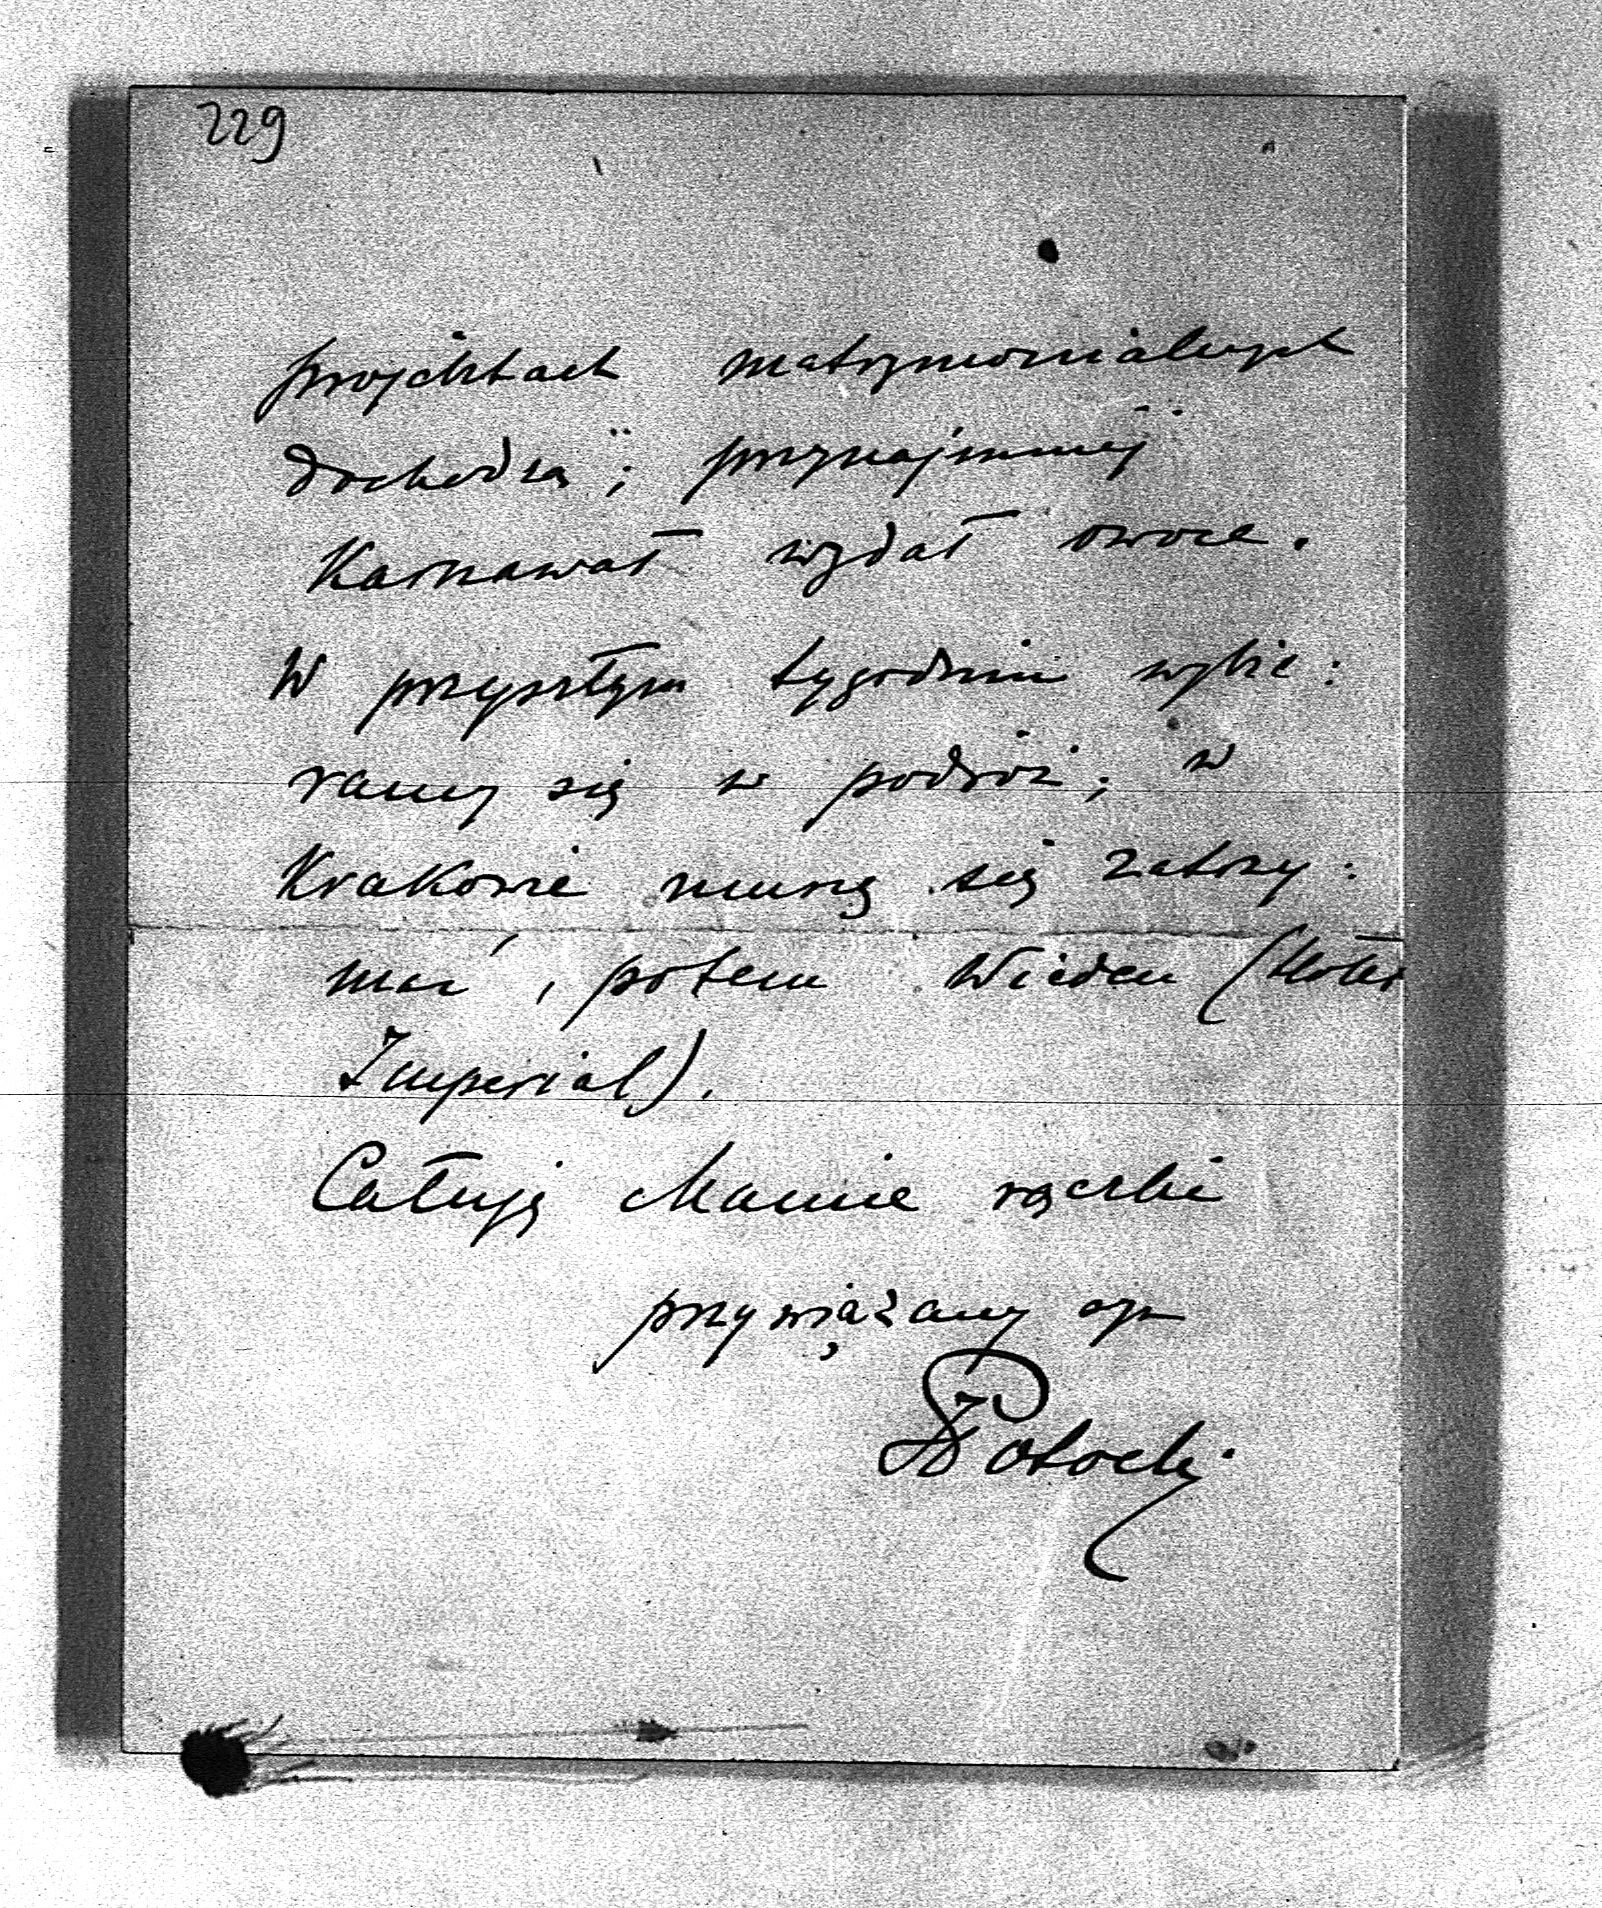 229
projektach matrymonialnych
dochodzą; przynajmniej
Karnawał wydał owoce.
W przyszłym tygodniu wybie:
ramy się w podróż; w
Krakowie muszę się zatrzy:
mać, potem Wiedeń (Hotel
Imperial).
Całuję Mamie rączki
przywiązany syn
Potocki